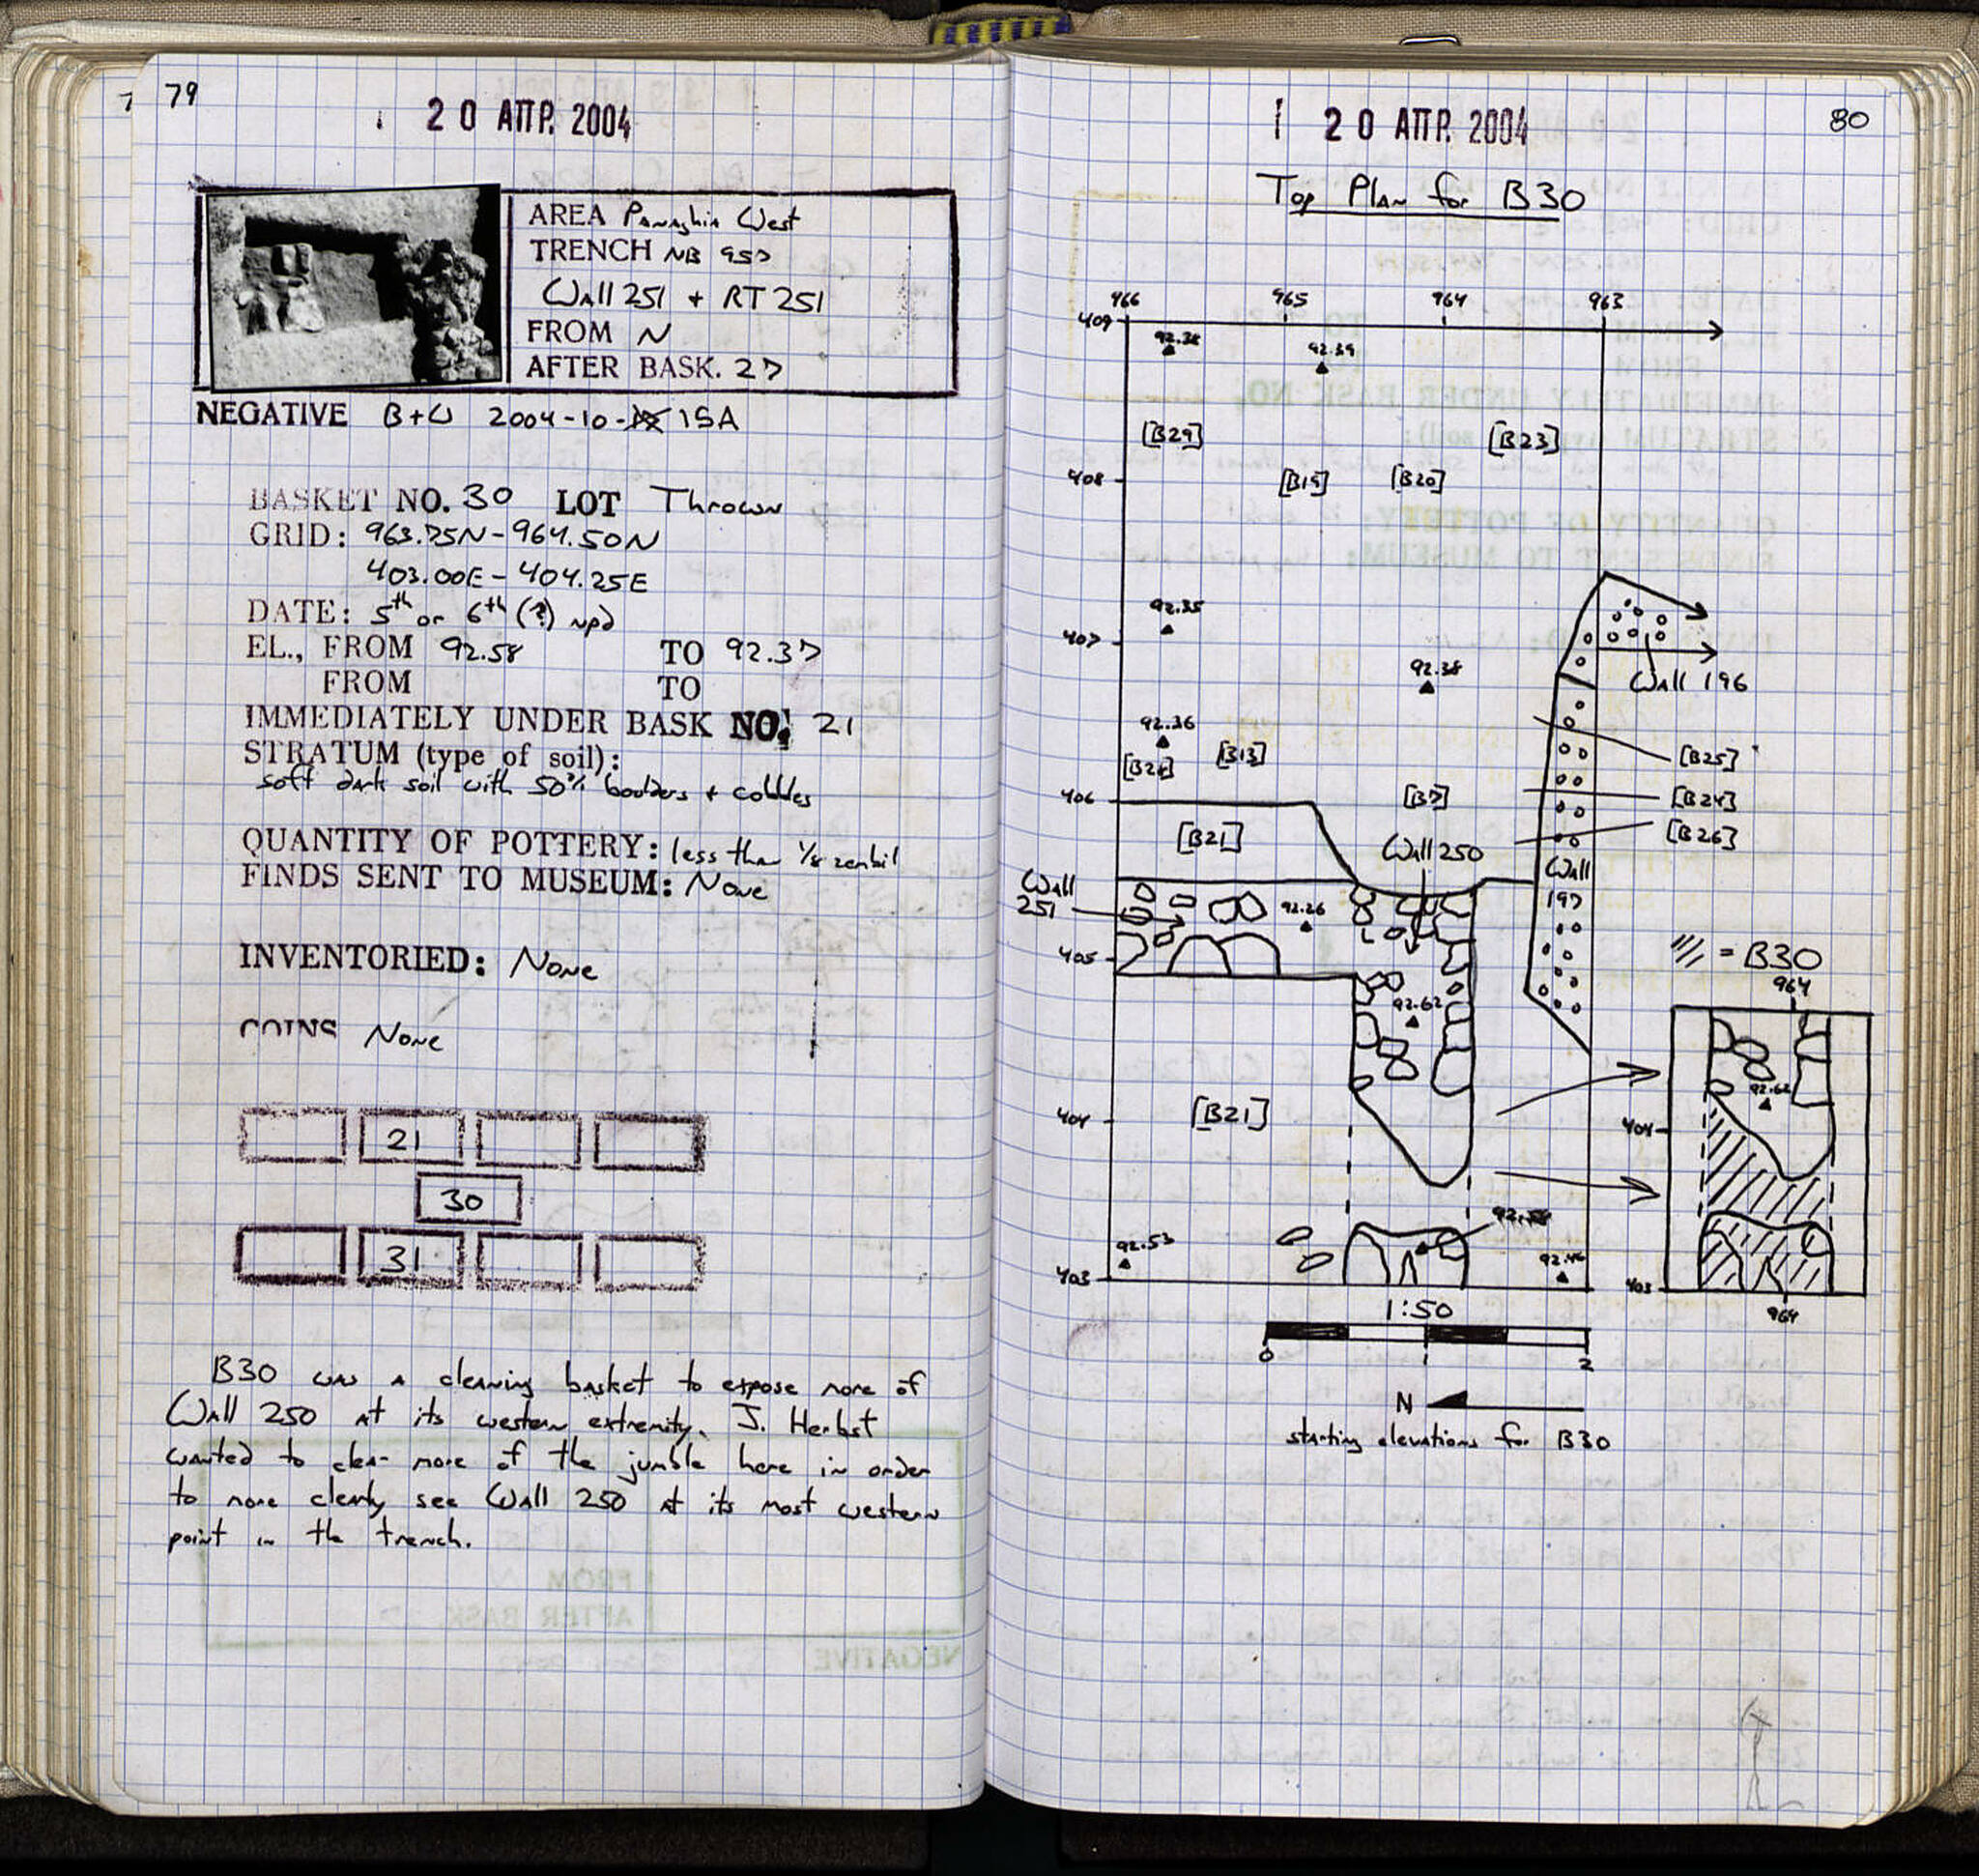 79
20 ΑΠΡ. 2004
AREA Panaghia West
TRENCH NB 957
Wall 251 + RT 251
FROM N
AFTER BASK. 27
NEGATIVE B+W 2004-10- 15A
BASKET NO. 30 LOT Thrown
GRID: 963.75N-964.50N
403.00E-404.25E
DATE: 5th or 6th (?) npd
EL., FROM 92.58 TO 92.37
FROM TO
IMMEDIATELY UNDER BASK NO. 21
STRATUM (type of soil):
soft dark soil with 50% boulders + cobbles
QUANTITY OF POTTERY: less than 1/8 zembil
FINDS SENT TO MUSEUM: None
INVENTORIED: None
COINS None
21
30
31
B30 was a cleaning basket to expose more of
Wall 250 at its western extremity. J. Herbst
wanted to clear more of the jumble here in order
to more clearly see Wall 250 at its most western
point in the trench.
20 ΑΠΡ. 2004
80
Top Plan for B30
966 965 964 963
409
92.38
92.39
[B29] [B23]
408 [B19] [B20]
92.35
407
92.38
Wall 196
92.36
[B13]
[B25]
406
[B7]
[B24]
[B21]
Wall 250
[B26]
Wall
251
Wall
197
92.26
405
/// = B30
964
92.62
92.62
404
[B21]
404
92.53
92.46
403
403
964
1:50
0 1 2
N
starting elevations for B30